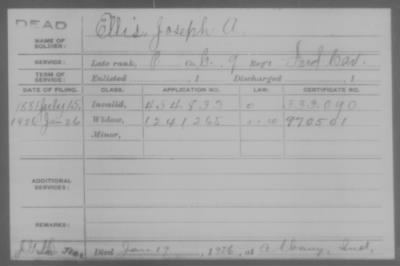 DEAD
NAME OF SOLDIER: Ellis, Joseph A.
SERVICE: Late rank, P Co. G, 9 Reg't Ind Cav.
TERM OF SERVICE: Enlisted , 1 Discharged , 1
DATE OF FILING. CLASS. APPLICATION NO. LAW. CERTIFICATE NO.
1881 July 15, Invalid,
1926 Jan 26 Widow, 1241265 970501
Minor,
ADDITIONAL SERVICES:
REMARKS:
Died Jan 19, 1926, at Albany, Ind.